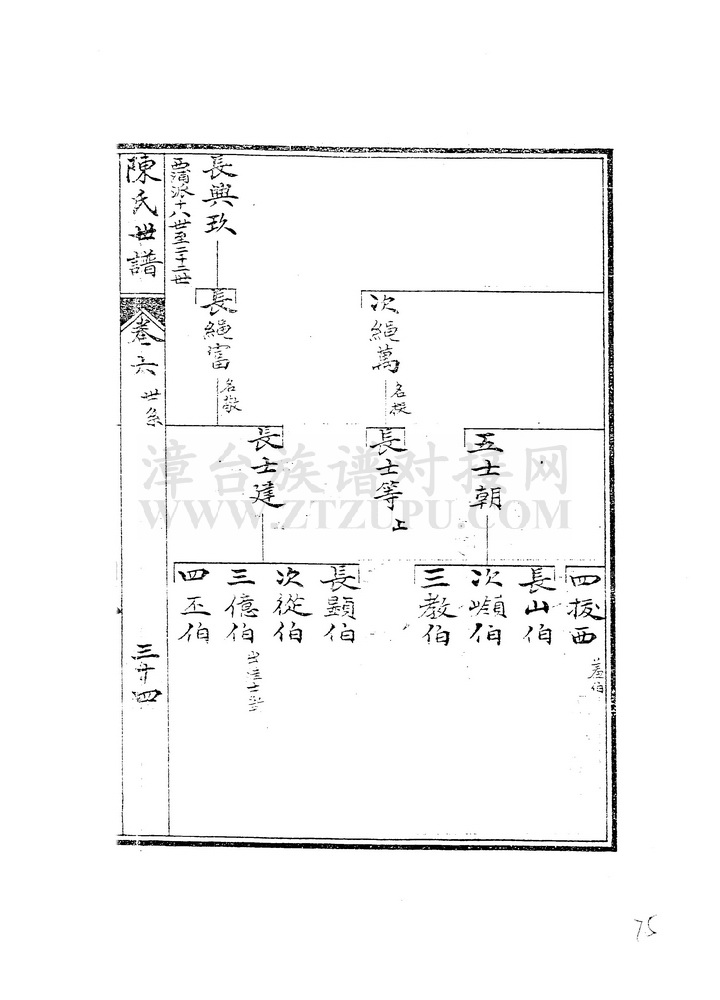 次繩萬
名擬
長興玖
長繩富
名敬
西浦派十八世至二十二世
五士朝
長士等
上
長士建
四拔西
蓋伯
長山伯
次嶺伯
三教伯
長顯伯
次從伯
三億伯
四丕伯
陳氏世譜
卷六
世系
三廿四
漳台族谱对接网
WWW.ZTZUPU.COM
75